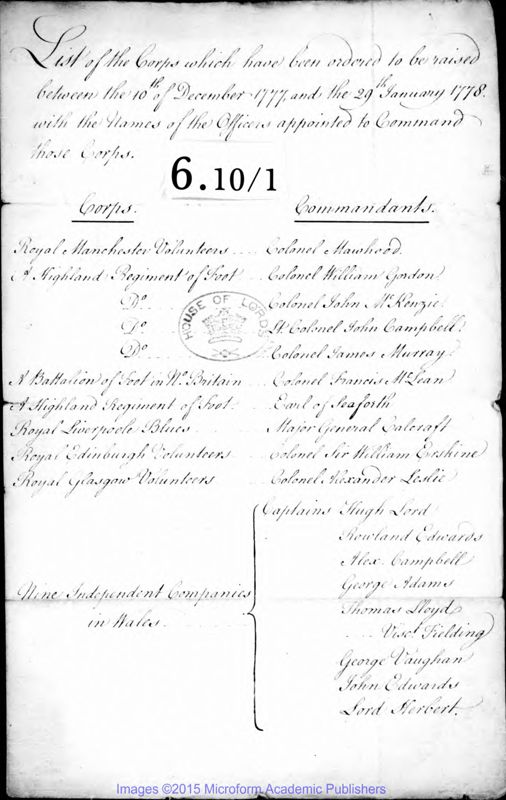 List of the Corps which have been ordered to be raised
between the 10th of December 1777, and the 29th January 1778.
with the Names of the Officers appointed to Command
those Corps.
6.10/1
Corps. Commandants.
Royal Manchester Volunteers .... Colonel Mawhood.
A Highland Regiment of Foot .. Colonel William Gordon
Do .... Colonel John McKenzie
Do .... Lt. Colonel John Campbell
Do .... Colonel James Murray
HOUSE OF LORDS
A Battalion of Foot in No. Britain ... Colonel Francis McLean
A Highland Regiment of Foot. .. Earl of Seaforth
Royal Liverpoole Blues ...... Major General Calcraft
Royal Edinburgh Volunteers .... Colonel Sir William Erskine
Royal Glasgow Volunteers ..... Colonel Alexander Leslie
Captains Hugh Lord
Rowland Edwards
Alex. Campbell
George Adams
Nine Independent Companies
Thomas Lloyd
in Wales.
.... Visct. Fielding
George Vaughan
John Edwards
Lord Herbert.
Images ©2015 Microform Academic Publishers